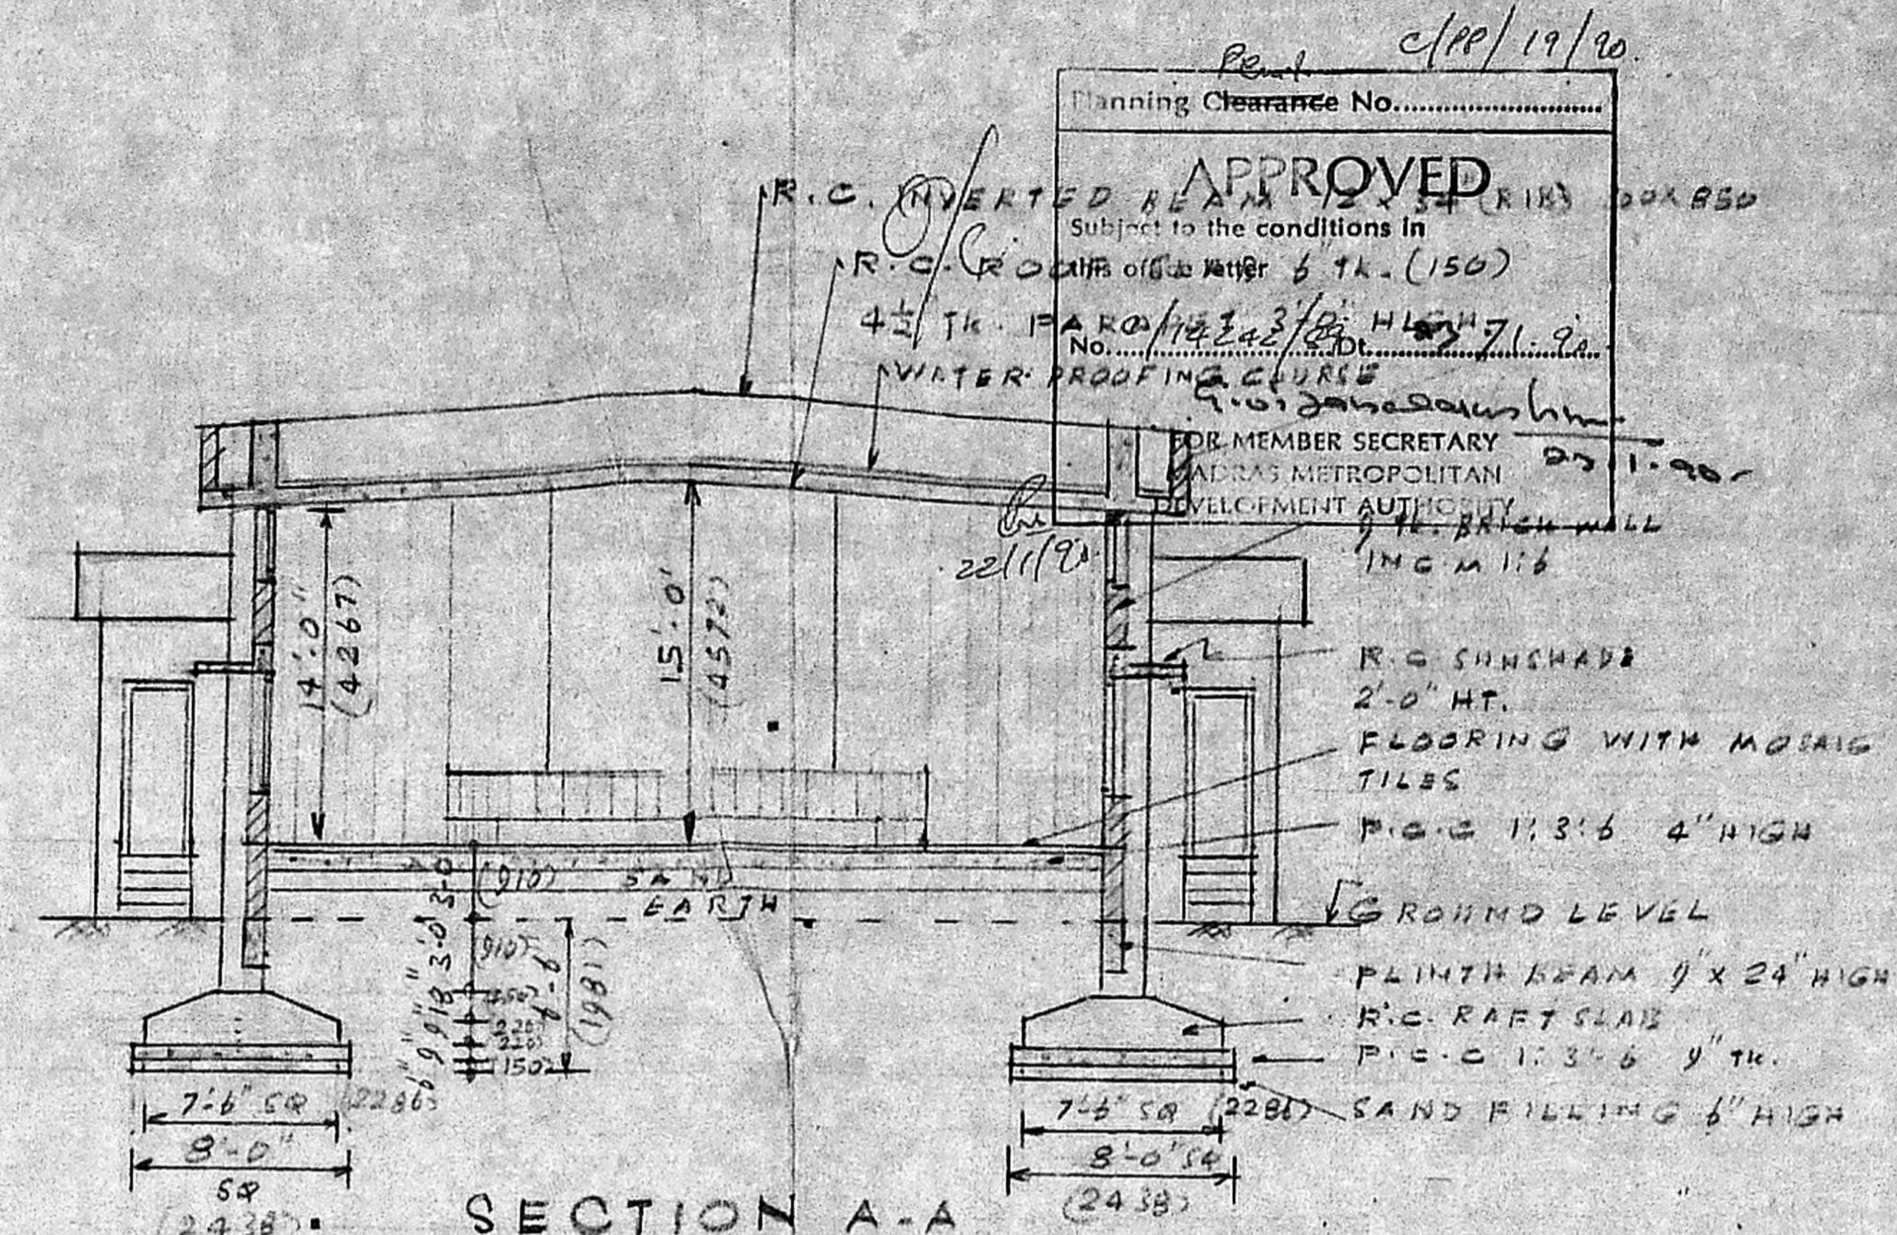 C/PP/19/90.
Planning Clearance No.
APPROVED
Subject to the conditions in
this office letter
No. Dt.
FOR MEMBER SECRETARY
MADRAS METROPOLITAN
DEVELOPMENT AUTHORITY
22/1/90
R.C. INVERTED BEAM (RIB) X 850
R.C. ROOF SLAB 6" TK. (150)
4½" TK. PARAPET 3'-0" HIGH.
WATER PROOFING COURSE
9" TK. BRICK WALL
IN C M 1:6
R.C SUNSHADE
2'-0" HT.
FLOORING WITH MOSAIC
TILES
P.C.C 1:3:6 4" HIGH
GROUND LEVEL
PLINTH BEAM 9" X 24" HIGH
R.C. RAFT SLAB
P.C.C 1:3:6 9" TK.
SAND FILLING 6" HIGH
14'.0"
(4267)
15'.0'
(4572)
SAND
EARTH
3'-0
(910)
3'-0"
(910)
18"
9"
(220)
9"
(220)
6"
(150)
(1981)
7'-6" SQ (2286)
8'-0"
SQ
(2438)
7'-6" SQ (2286)
8'-0" SQ
(2438)
SECTION A-A